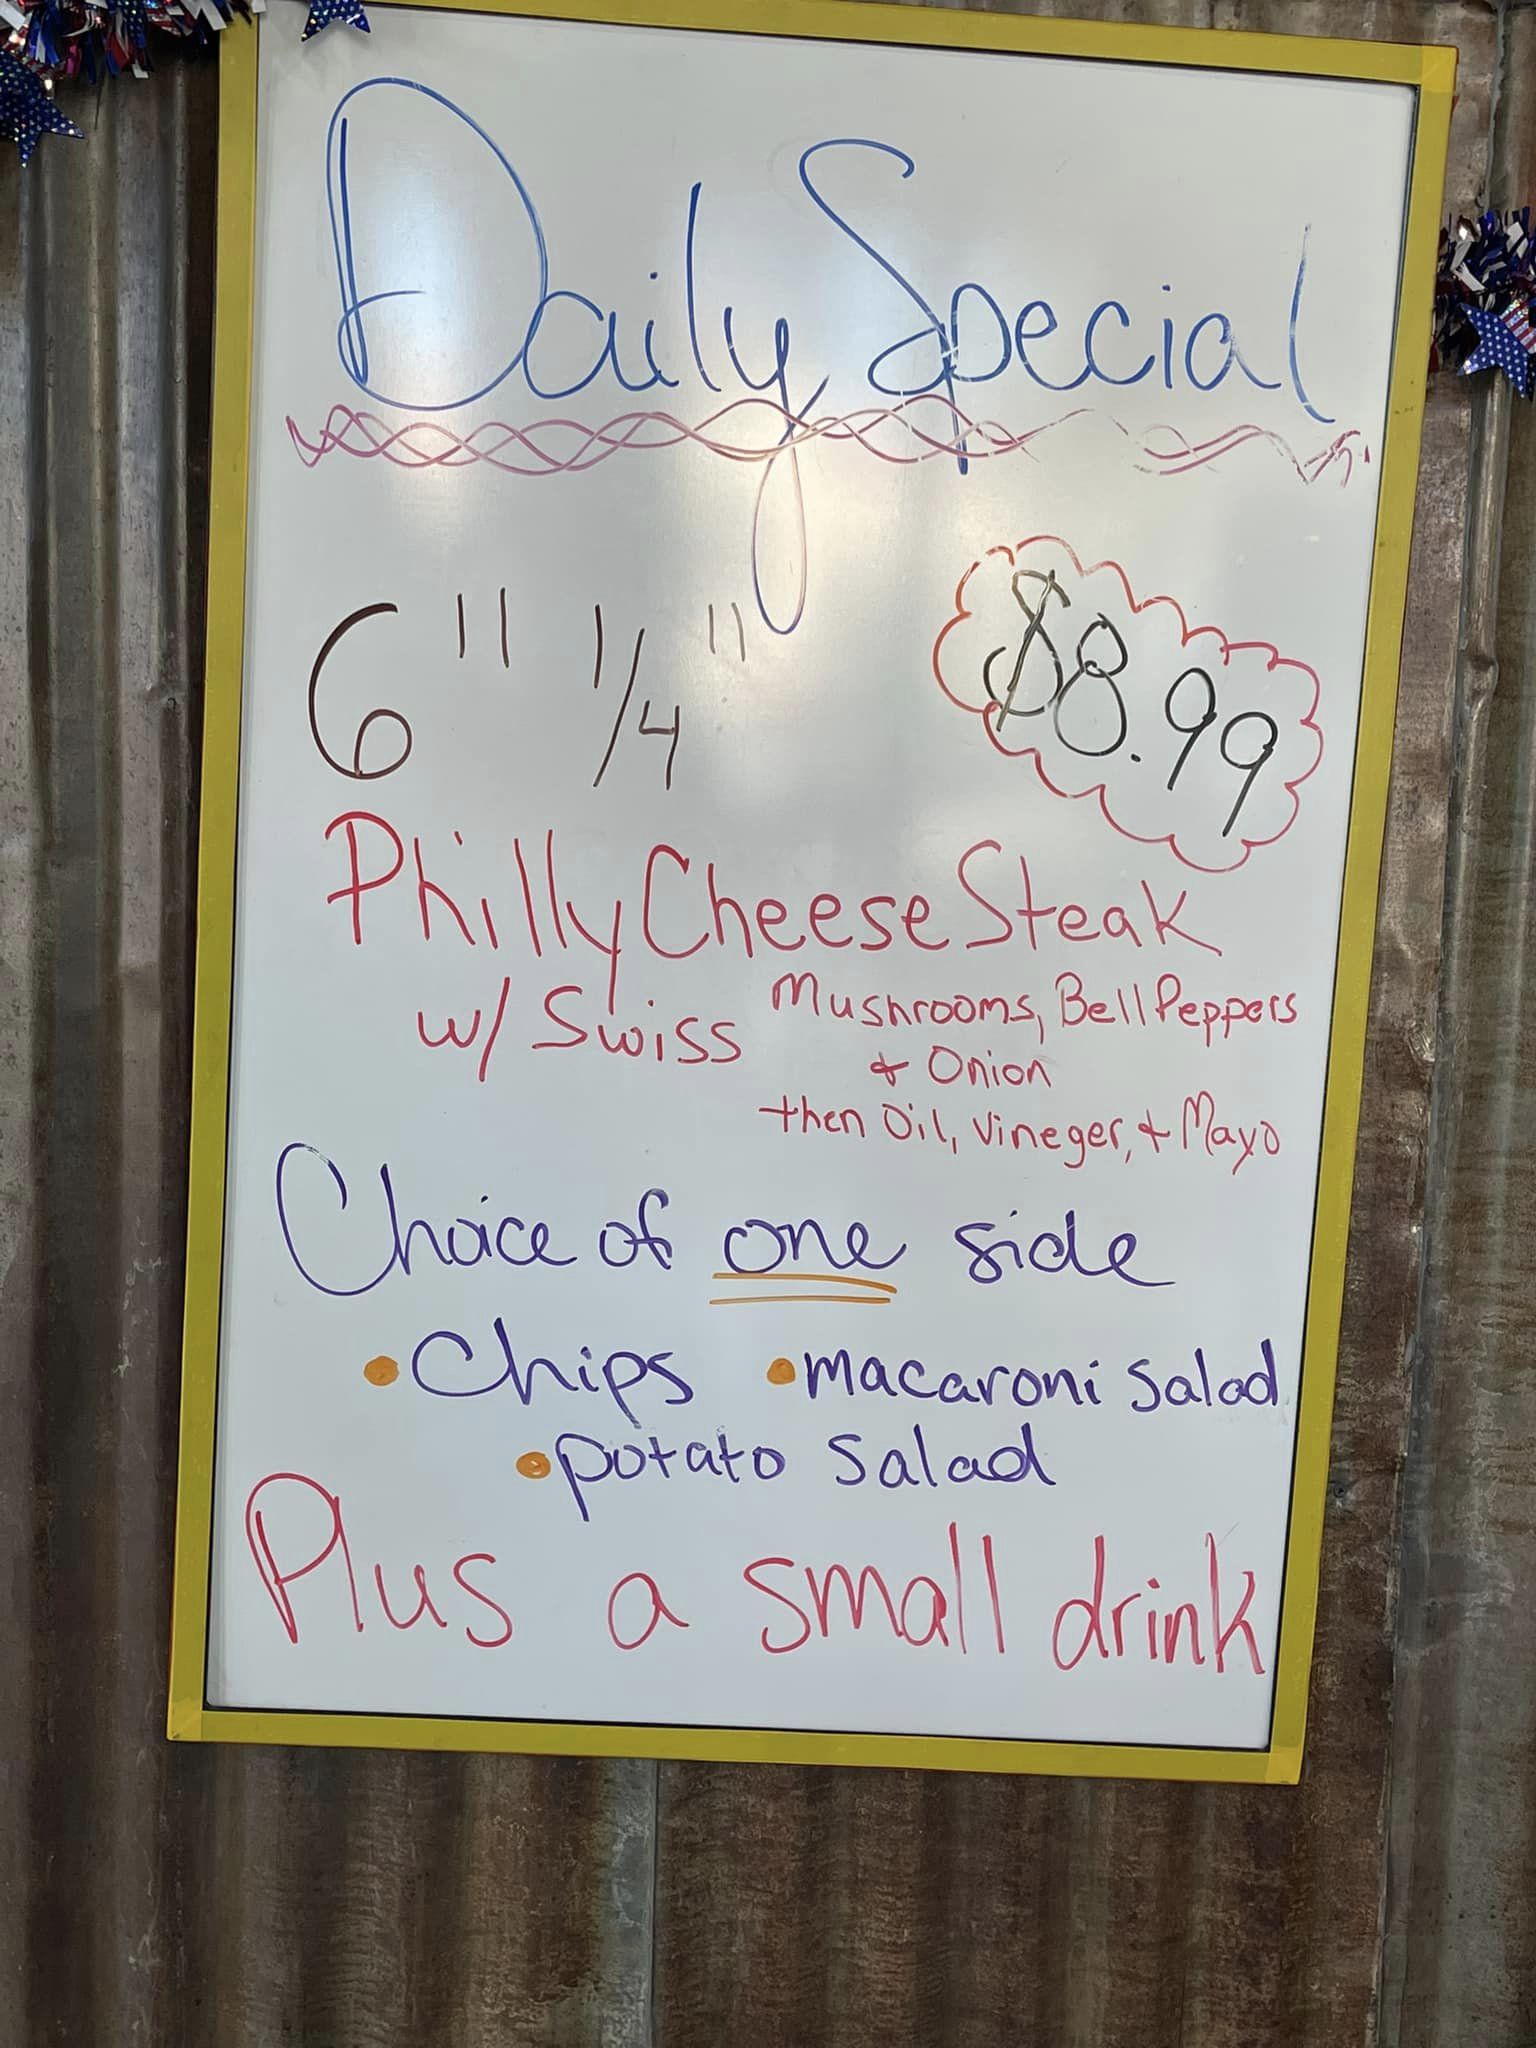 Daily Special
6" 1/4"
$8.99
Philly Cheese Steak
w/ Swiss
Mushrooms, Bell Peppers
& Onion
then Oil, Vineger, & Mayo
Choice of one side
• Chips • macaroni salad
• potato salad
Plus a small drink